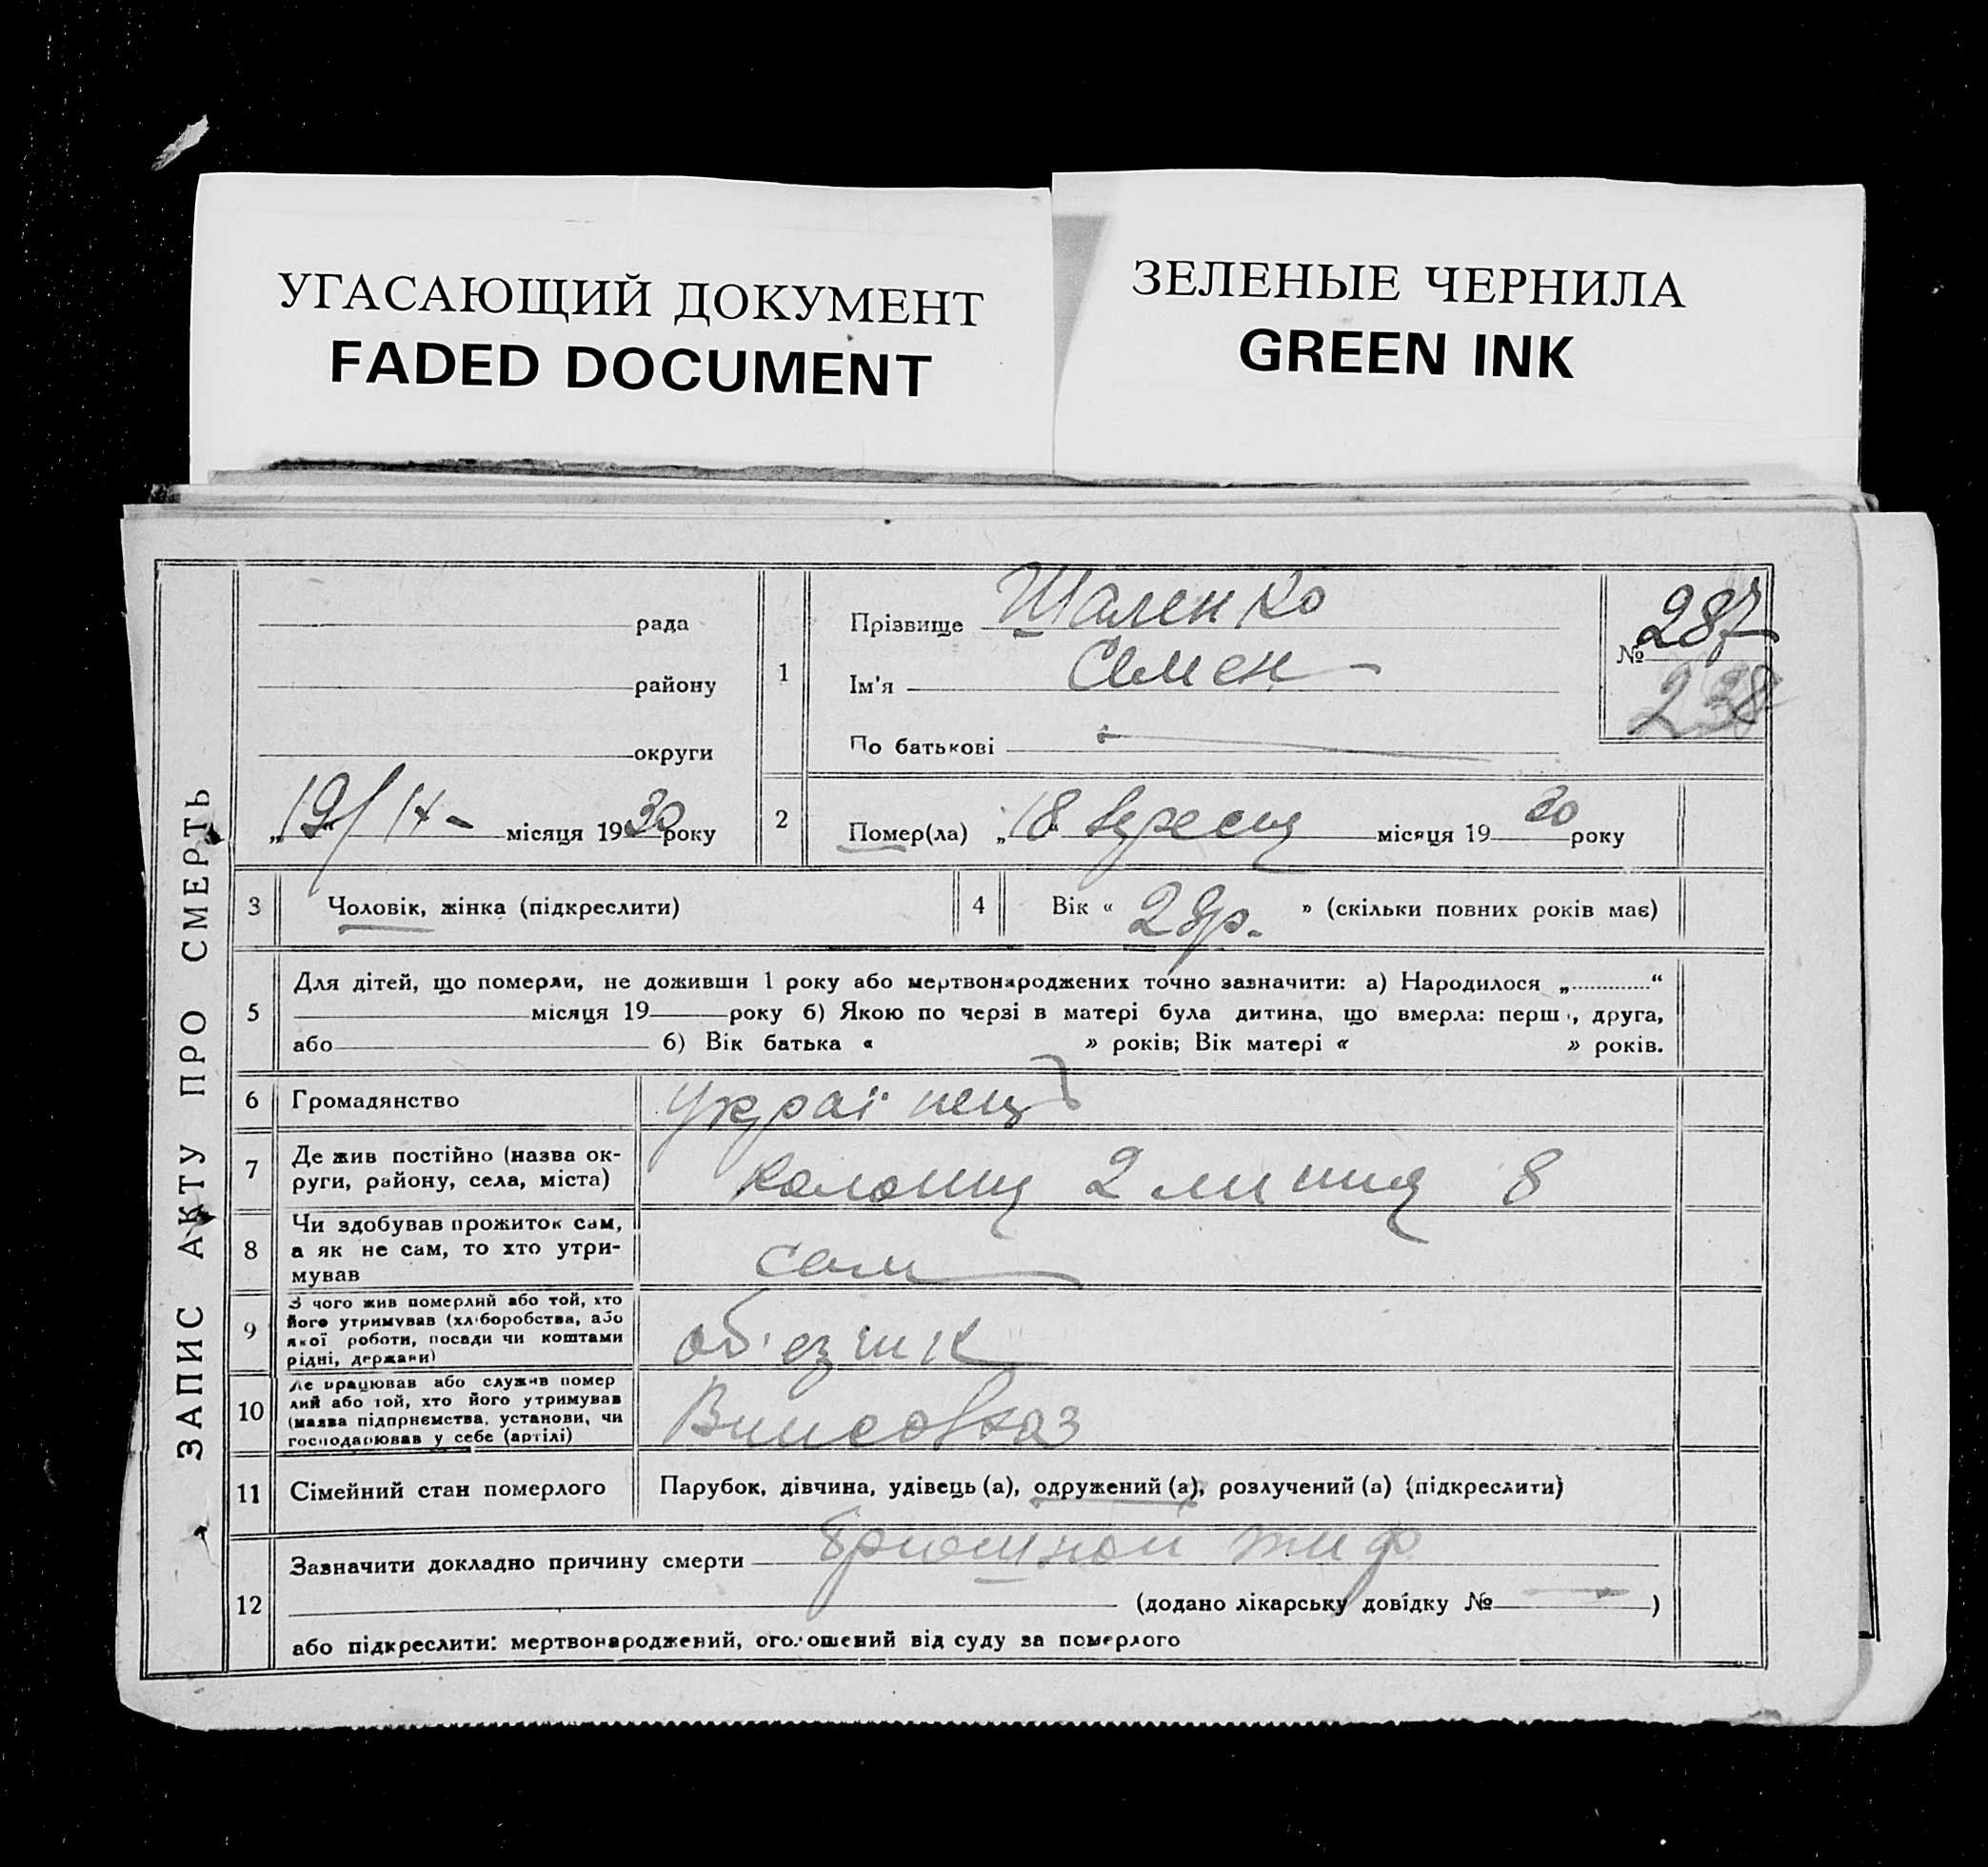 УГАСАЮЩИЙ ДОКУМЕНТ
FADED DOCUMENT
ЗЕЛЕНЫЕ ЧЕРНИЛА
GREEN INK
ЗАПИС АКТУ ПРО СМЕРТЬ
рада
району
округи
„19/IX- місяця 1930 року
1
Прізвище Шаленко
Ім'я Семен
По батькові
№ 287
238
2
Помер(ла) „18“ вересня місяця 19 30 року
3
Чоловік, жінка (підкреслити)
4
Вік « 28р. » (скільки повних років має)
5
Для дітей, що померли, не доживши 1 року або мертвонароджених точно зазначити: а) Народилося „.............“
місяця 19 року б) Якою по черзі в матері була дитина, що вмерла: перша, друга,
або б) Вік батька « » років; Вік матері « » років.
6
Громадянство
українець
7
Де жив постійно (назва ок-
руги, району, села, міста)
колонія 2 линия 8
8
Чи здобував прожиток сам,
а як не сам, то хто утри-
мував
сам
9
З чого жив померлий або той, хто
його утримував (хліборобства, або
якої роботи, посади чи коштами
рідні, держави)
об'езчик
10
Де працював або служив помер
лий або той, хто його утримував
(назва підприємства, установи, чи
господарював у себе (артілі)
11
Сімейний стан померлого
Парубок, дівчина, удівець (а), одружений (а), розлучений (а) (підкреслити)
12
Зазначити докладно причину смерти брюшной тиф
(додано лікарську довідку № )
або підкреслити: мертвонароджений, оголошений від суду за померлого